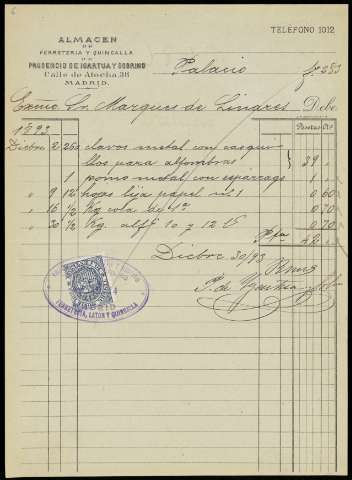 TELEFONO 1012
ALMACEN
DE
FERRETERIA Y QUINCALLA
DE
PRUDENCIO DE IGARTUA Y SOBRINO
Calle de Atocha, 36
MADRID.
Palacio
Excmo Sr. Marques de Linares Debe
1893 Pesetas Cts
Dicbre 2 250 clavos metal con casqui-
llos para alfombras 39 "
" " 1 pomo metal con esparrago 1 "
" 9 12 hojas lija papel nº 1 0,60
" 16 ½ Kg cola de 1ª 0,70
" 20 ½ Kg. alfs 10 y 12 0,70
Pta 42
Dicbre 30/93
P. de Igartua
FERRETERIA, LATON Y QUINCALLA